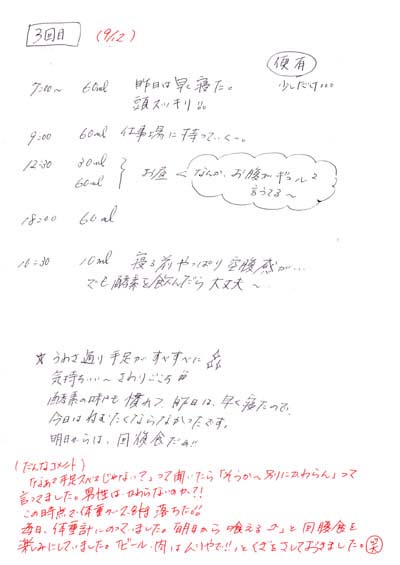 3回目 (9/12)
便有
7:00〜 60ml 昨日は早く寝た。 少しだけ...
頭スッキリ!!
9:00 60ml 仕事場に持っていく〜。
12:30 30ml お昼 なんか、お腹がギュルと
60ml 言うてる〜
18:00 60ml
10ml 寝る前やっぱり空腹感が...
でも酵素を飲んだら大丈夫〜
☆ うわさ通り手足がすべすべに
気持ちいい〜さわりごこち
酵素の味も慣れて、昨日は、早く寝たので、
今日はねむたくならなかったです。
明日からは、回復食だぁ!!
(だんなコメント)
「なぁて手足スベスベじゃない?」って聞いたら「そうか〜別にかわらん」って
言ってました。男性はかわらないのか?!
この時点で体重が
毎日、体重計にのっていました。「明日から喰えるぅ」と回復食を
楽しみにしていました。「ビール・肉はんりやで!!」とくぎをさしておきました。笑